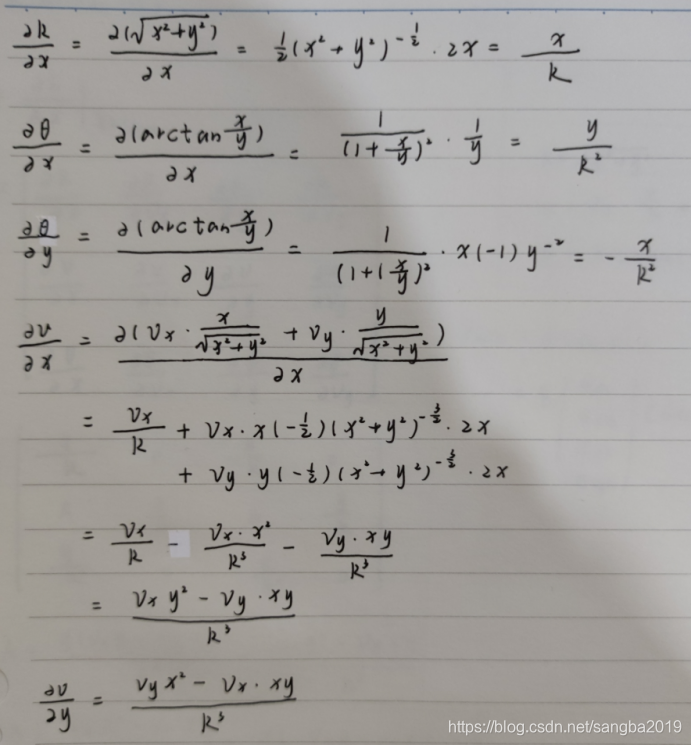 ∂R/∂x = ∂(√(x²+y²))/∂x = ½(x²+y²)^(-½) · 2x = x/R
∂θ/∂x = ∂(arctan x/y)/∂x = 1/(1+x/y)² · 1/y = y/R²
∂θ/∂y = ∂(arctan x/y)/∂y = 1/(1+(x/y)² · x(-1)y^(-2) = - x/R²
∂v/∂x = ∂(Vx · x/√(x²+y²) + Vy · y/√(x²+y²))/∂x
= Vx/R + Vx · x(-½)(x²+y²)^(-3/2) · 2x
+ Vy · y(-½)(x²+y²)^(-3/2) · 2x
= Vx/R - Vx · x²/R³ - Vy · xy/R³
= (Vx y² - Vy · xy)/R³
∂v/∂y = (Vy x² - Vx · xy)/R³
https://blog.csdn.net/sangba2019